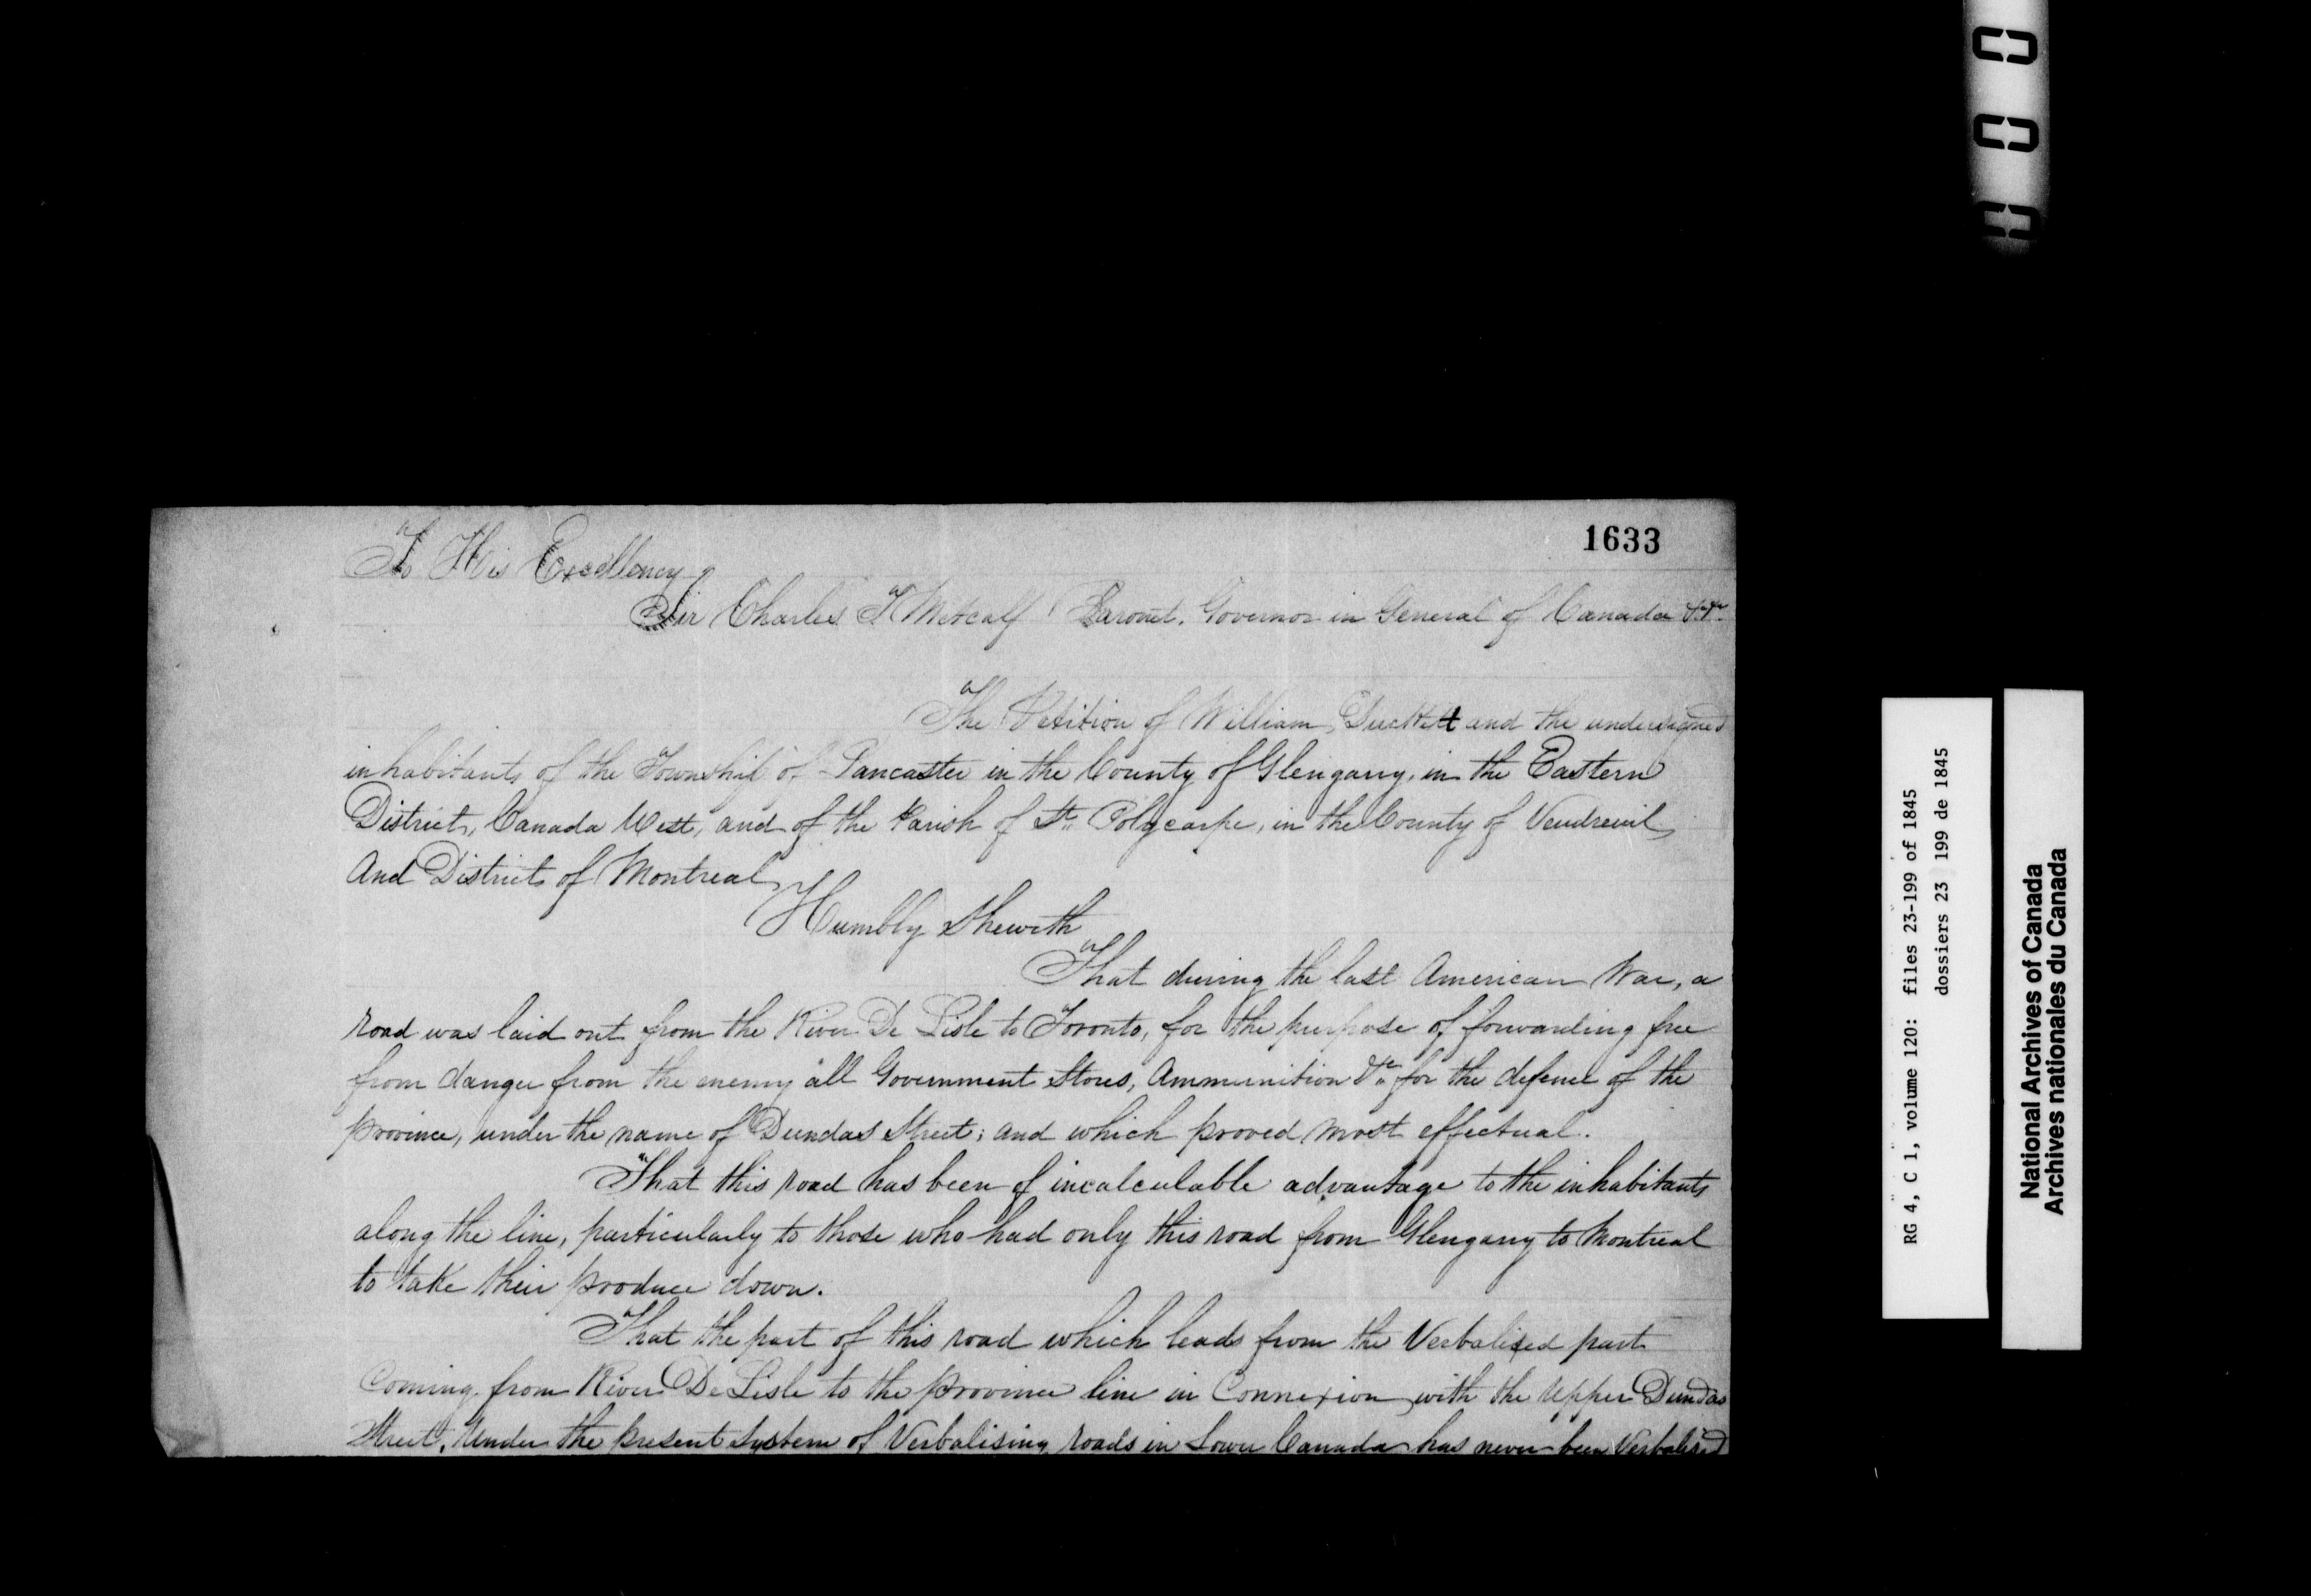 1633
To His Excellency
Sir Charles T Metcalf Baronet. Governor in General of Canada &c.
The Petition of William Duckett and the undersigned
inhabitants of the Township of Lancaster in the County of Glengarry, in the Eastern
District, Canada West, and of the Parish of St. Polycarpe, in the County of Vaudreuil
And District of Montreal
Humbly Sheweth
That during the last American War, a
road was laid out from the River De Lisle to Toronto, for the purpose of forwarding free
from danger from the enemy all Government Stores, Ammunition &c for the defence of the
province, under the name of Dundas Street; and which proved most effectual.
That this road has been of incalculable advantage to the inhabitants
along the line, particularly to those who had only this road from Glengarry to Montreal
to take their produce down.
That the part of this road which leads from the Verbalized part
Coming from River De Lisle to the province line in Connexion with the Upper Dundas
Street, Under the present System of Verbalising roads in Lower Canada has never been Verbalised
RG 4, C 1, volume 120: files 23-199 of 1845
dossiers 23 199 de 1845
National Archives of Canada
Archives nationales du Canada